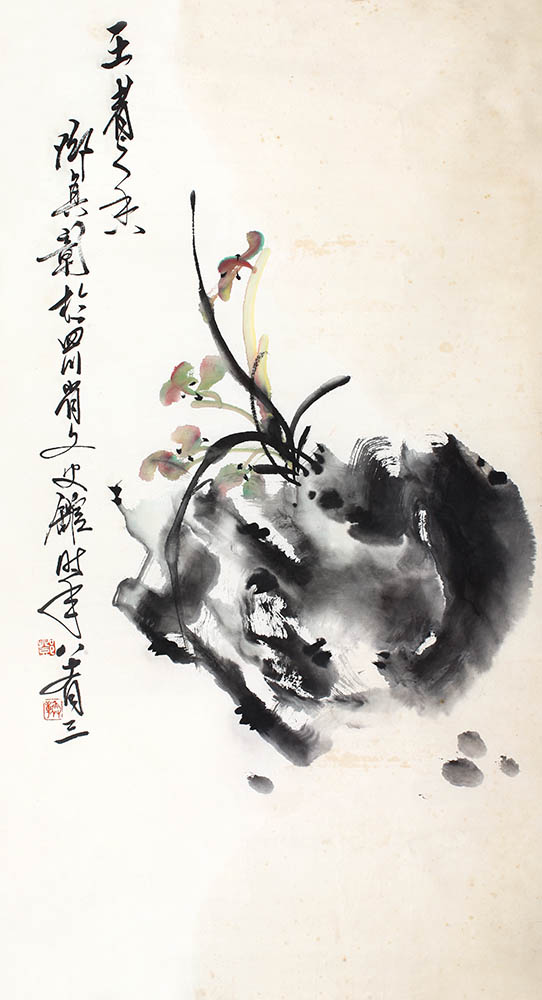 王者之香
邓奂彰於四川省文史館时年八十有三